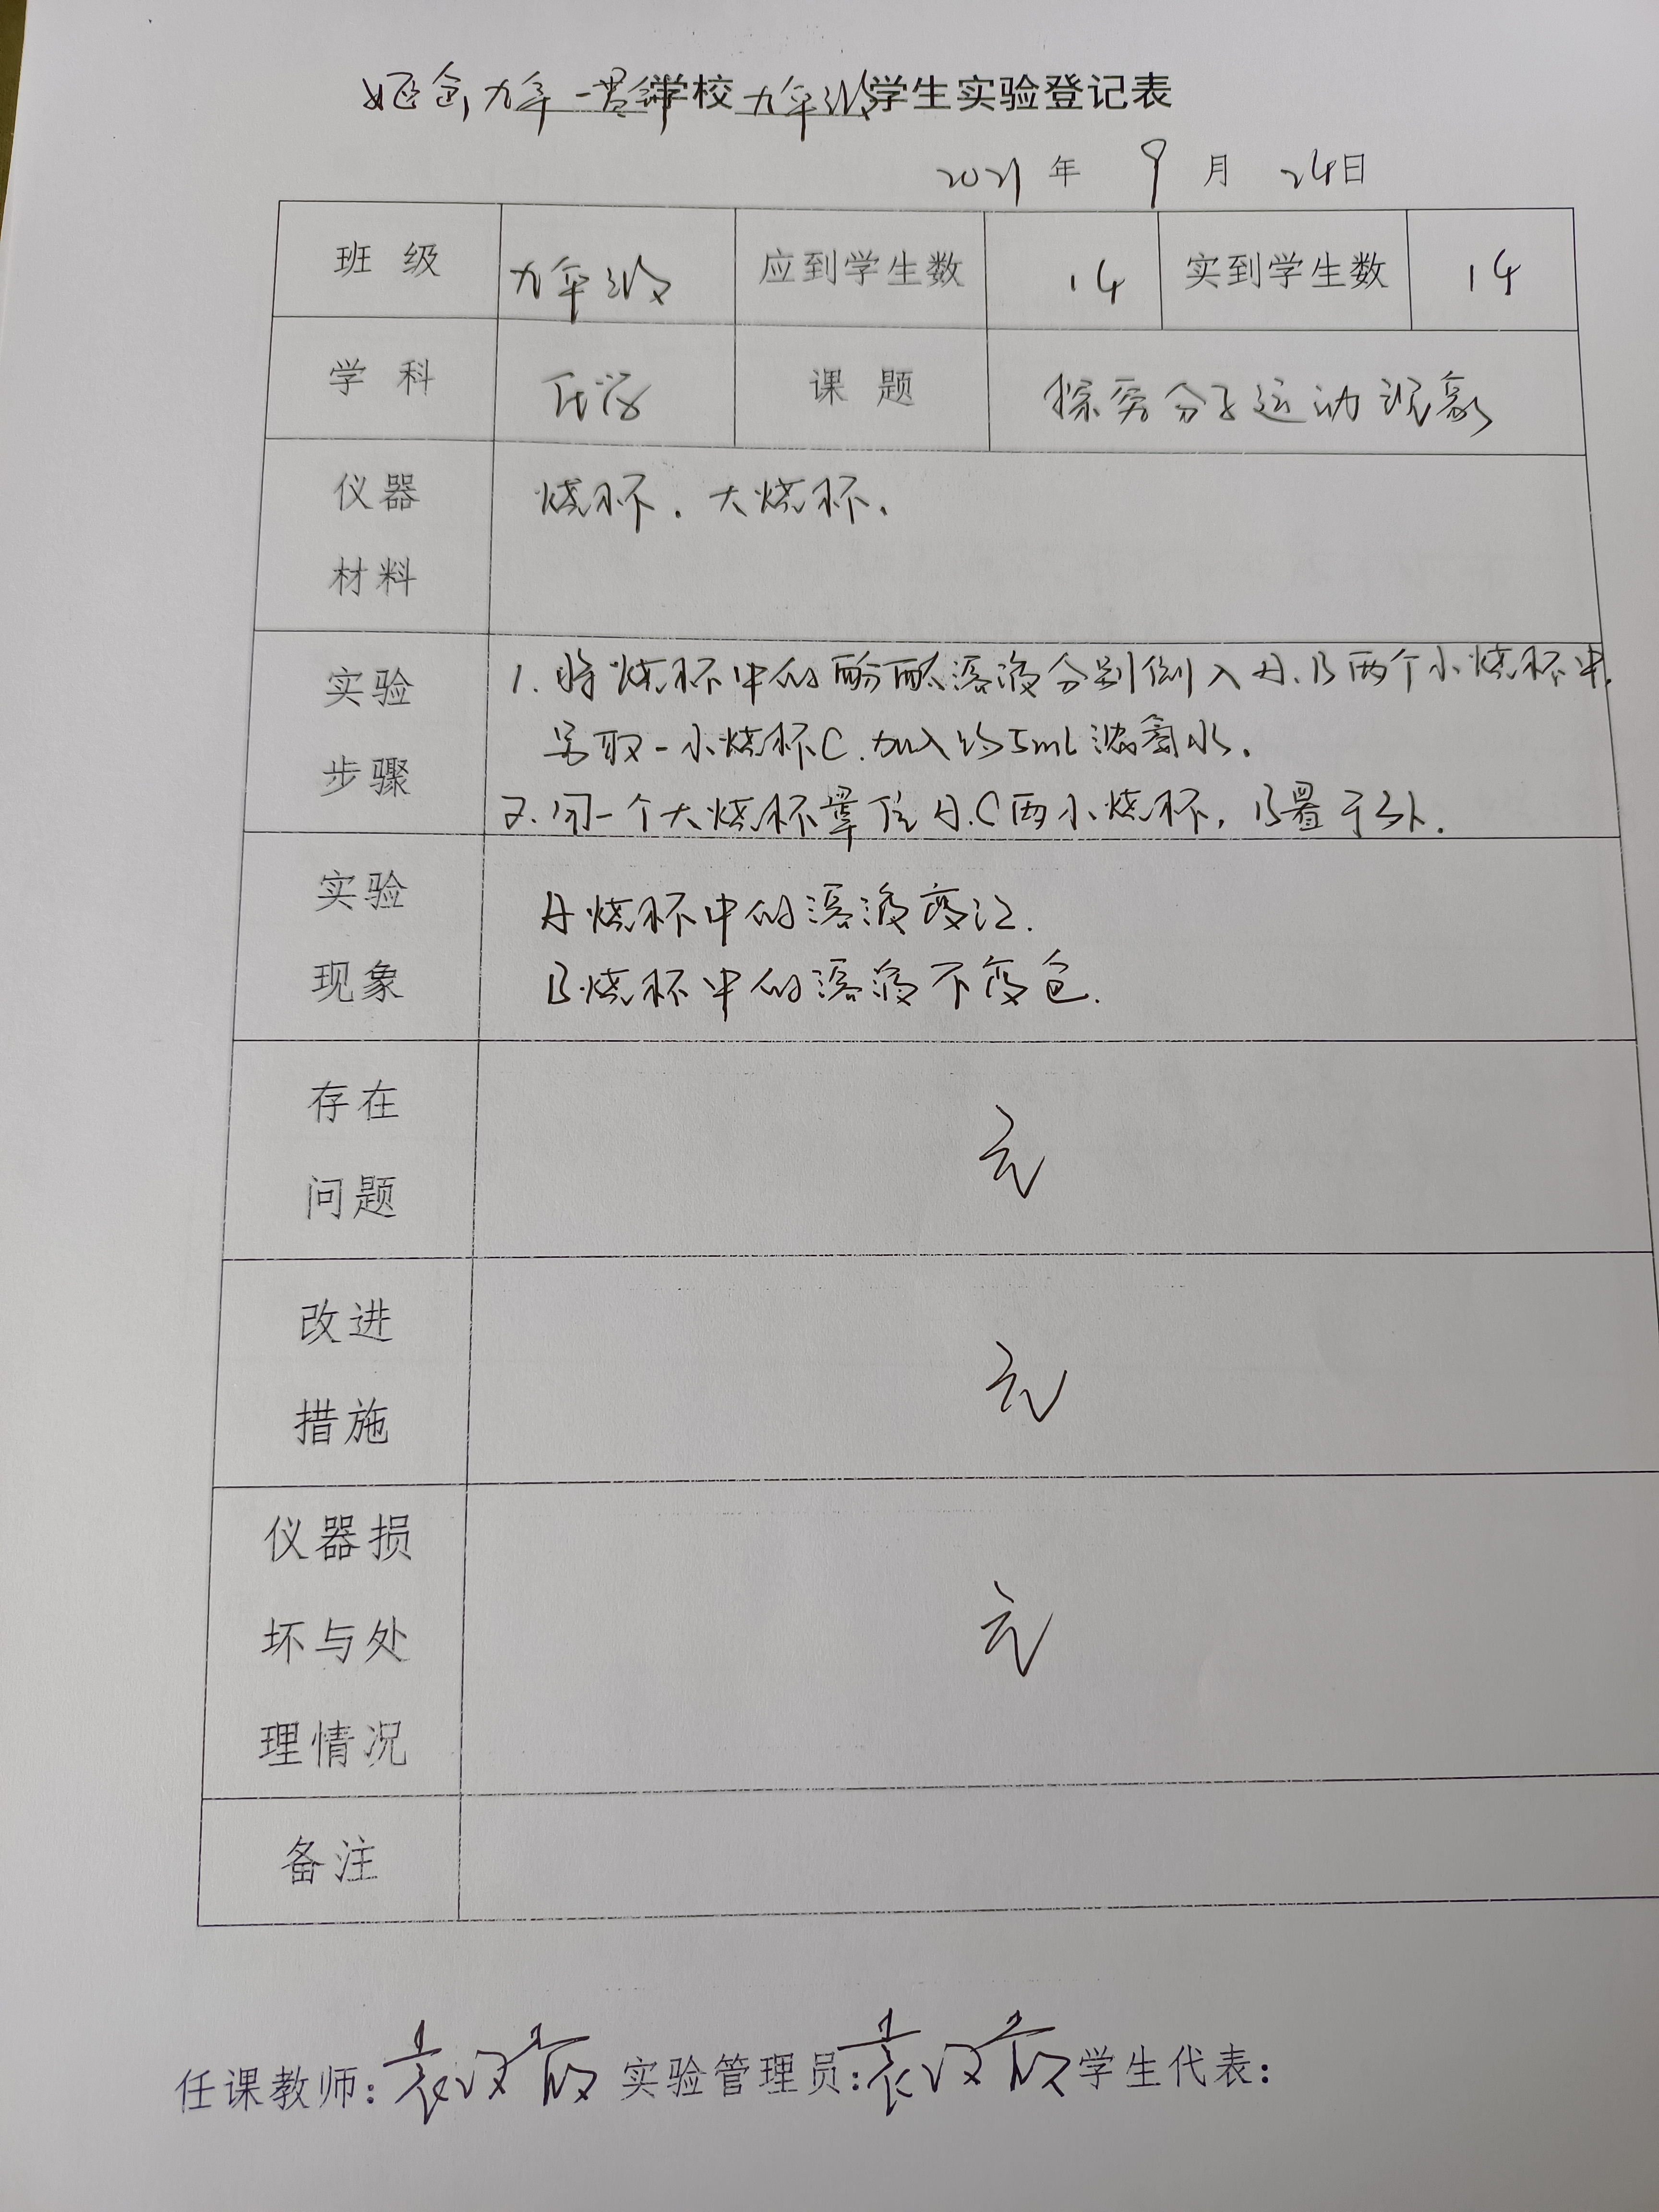 九年一贯制学校九年级学生实验登记表
2021年 9月 24日
班级 九年级 应到学生数 14 实到学生数 14
学科 化学 课题 探究分子运动现象
仪器材料 烧杯. 大烧杯.
实验步骤 1. 将烧杯中的酚酞溶液分别倒入A.B两个小烧杯中,
另取一小烧杯C.加入约5mL浓氨水.
2. 用一个大烧杯罩住A.C两小烧杯, B置于外.
实验现象 A烧杯中的溶液变红.
B烧杯中的溶液不变色.
存在问题 无
改进措施 无
仪器损坏与处理情况 无
备注
任课教师: 袁 实验管理员: 袁 学生代表: